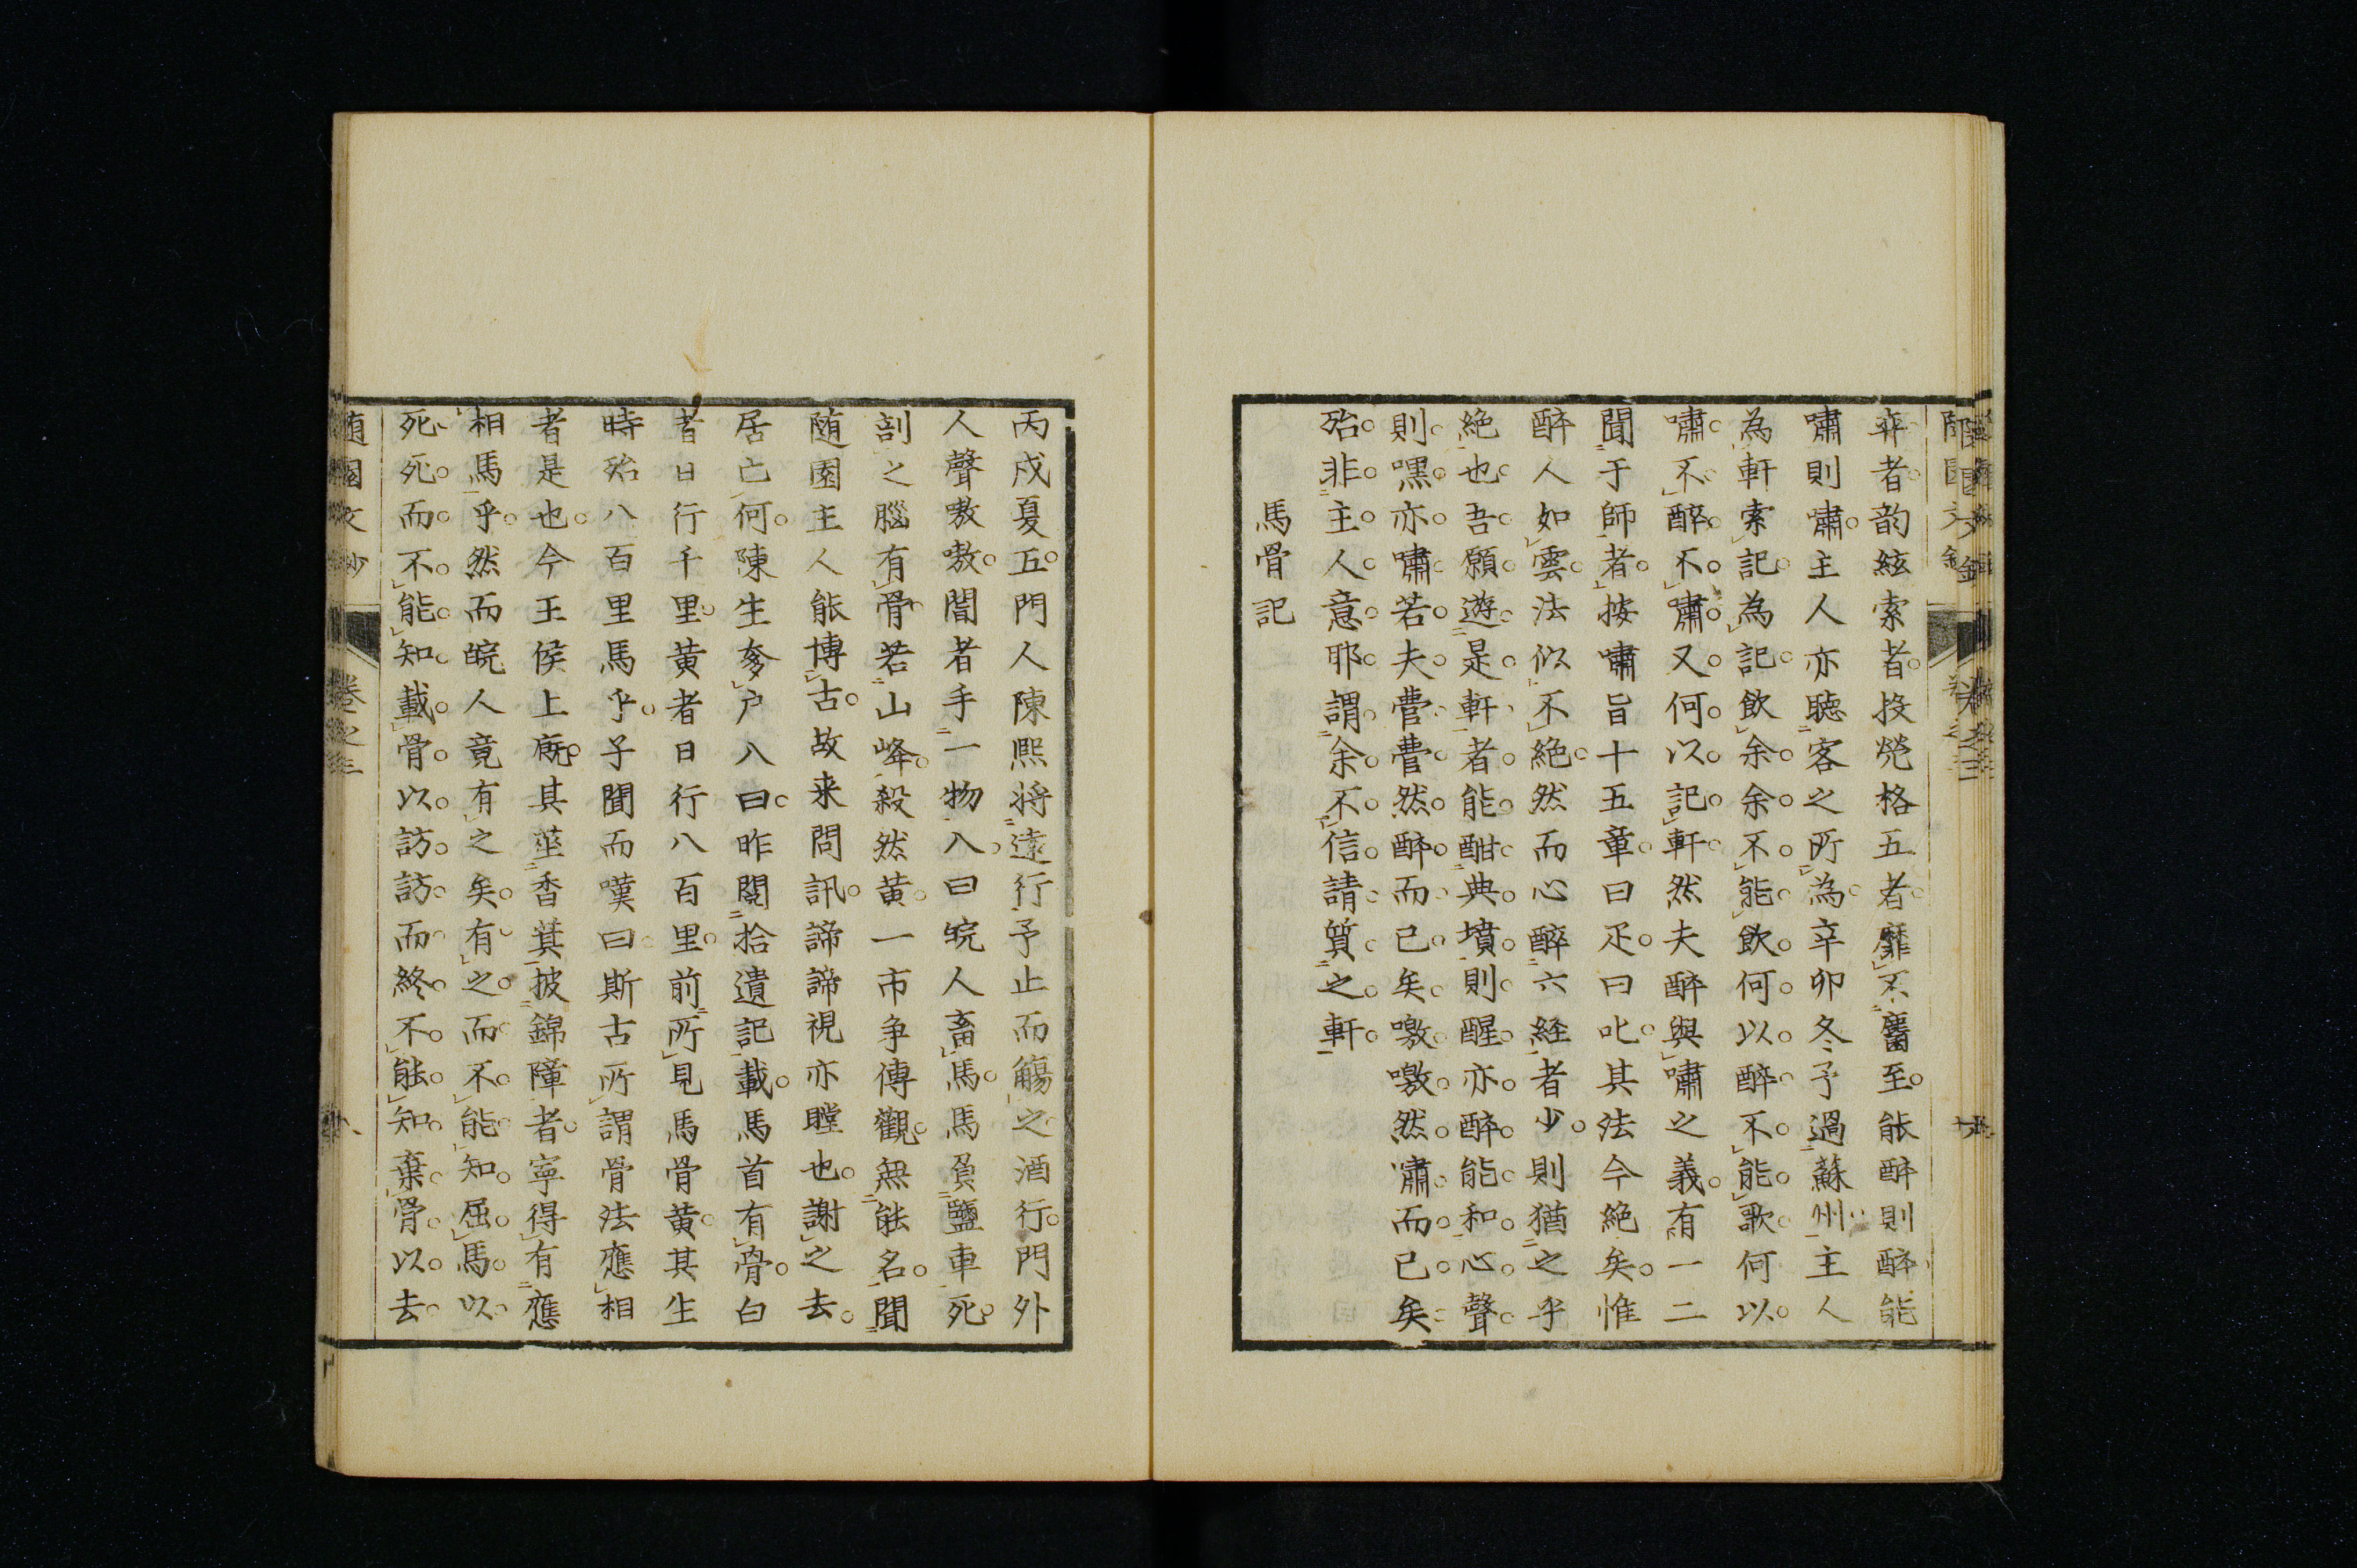 弈者韵絃索者投焭格五者靡不麕至能醉則醉能
嘯則嘯主人亦聽客之所為辛卯冬予過蘇州主人
為軒索記為記飲余余不能飲何以醉不能歌何以
嘯不醉不嘯又何以記軒然夫醉與嘯之義有一二
聞于師者按嘯旨十五章曰疋曰叱其法今絕矣惟
醉人如雲法似不絕然而心醉六経者少則猶之乎
絕也吾願遊是軒者能酣典墳則醒亦醉能和心聲
則嘿亦嘯若夫瞢瞢然醉而已矣噭噭然嘯而已矣
殆非主人意耶謂余不信請質之軒
馬骨記
丙戌夏五門人陳熙将遠行予止而觴之酒行門外
人聲嗷嗷閽者手一物入曰皖人畜馬馬負鹽車死
剖之腦有骨若山峰殺然黄一市争傳觀無能名聞
随園主人能博古故来問訊諦諦視亦瞠也謝之去
居亡何陳生奓戶入曰昨閱拾遺記載馬首有骨白
者日行千里黄者日行八百里前所見馬骨黄其生
時殆八百里馬乎予聞而嘆曰斯古所謂骨法應相
者是也今王侯上廐其莝香萁披錦障者寧得有應
相馬乎然而皖人竟有之矣有之而不能知屈馬以
死死而不能知載骨以訪訪而終不能知棄骨以去
随園文鈔 卷之三